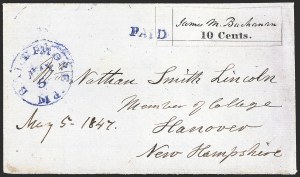 James M. Buchanan
10 Cents.
PAID
BALTIMORE Md.
MAY
5
Nathan Smith Lincoln
Member of College
May 5 - 1847.
Hanover
New Hampshire